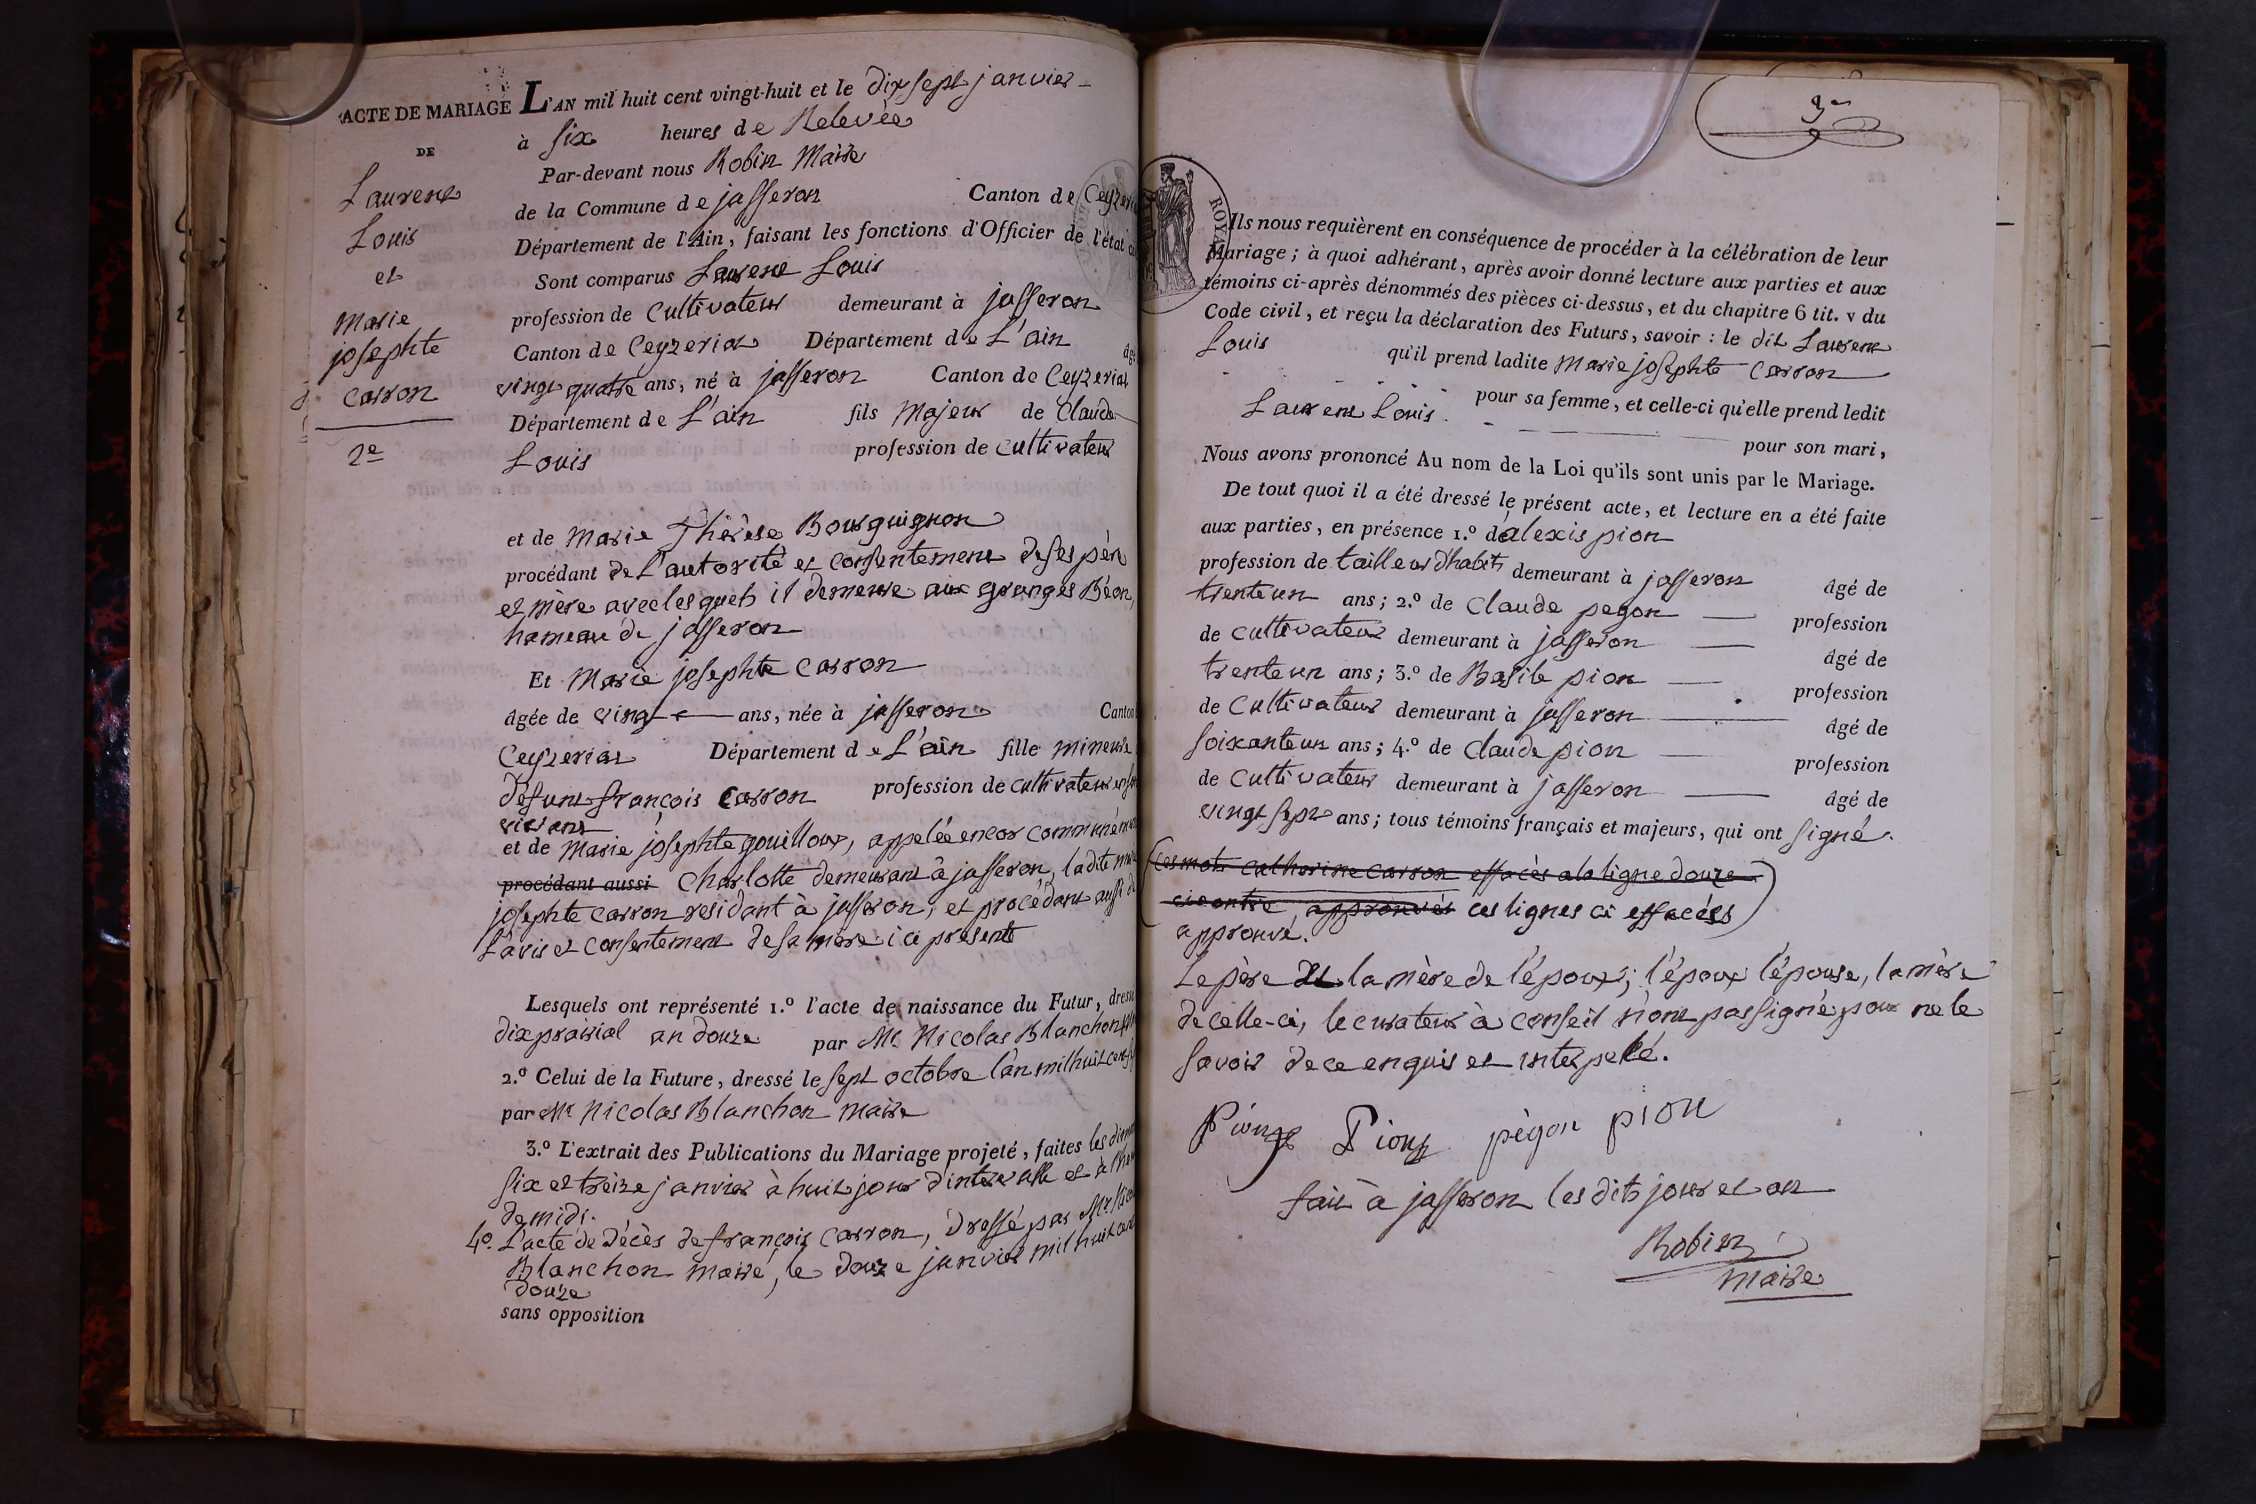 ACTE DE MARIAGE
DE
Laurent
Louis
et
Marie
josephte
Carron
2e
L'AN mil huit cent vingt-huit et le dix sept janvier
à six heures de Relevée
Par-devant nous Robin Maire
de la Commune de jasseron Canton de Ceyzeria
Département de l'Ain, faisant les fonctions d'Officier de l'état
Sont comparus Laurent Louis
profession de Cultivateur demeurant à jasseron
Canton de Ceyzeriat Département de L'ain âgé
vingt quatre ans, né à jasseron Canton de Ceyzeriat
Département de L'ain fils Majeur de Claude
Louis profession de Cultivateur
et de Marie Thérèse Bourguignon
procédant de L'autorité et consentement de ses père
et mère avec lesquels il demeure aux granges Béon,
hameau de jasseron
Et Marie josephte Carron
âgée de vingt ans, née à jasseron Canton
Ceyzeriat Département de L'ain fille mineure
défunt françois Carron profession de cultivateur
vivant
et de Marie josephte gouilloux, appelée encor communément
procédant aussi Charlotte demeurant à jasseron, ladite
josephte carron residant à jasseron, et procédant aussi de
L'avis et consentement de sa mère ici présente
Lesquels ont représenté 1.º l'acte de naissance du Futur, dressé
dix prairial an douze par Mr Nicolas Blanchon
2.º Celui de la Future, dressé le sept octobre l'an mil huit cent
par Mr Nicolas Blanchon maire
3.º L'extrait des Publications du Mariage projeté, faites les
six et treize janvier à huit jour d'intervalle et à
de midi.
4º. L'acte de décès de françois Carron, dressé par Mr
Blanchon maire, le douze janvier mil huit cent
douze
sans opposition
3
ROYA
Ils nous requièrent en conséquence de procéder à la célébration de leur
Mariage ; à quoi adhérant, après avoir donné lecture aux parties et aux
témoins ci-après dénommés des pièces ci-dessus, et du chapitre 6 tit. v du
Code civil, et reçu la déclaration des Futurs, savoir : le dit Laurent
Louis qu'il prend ladite Marie josephte Carron
pour sa femme, et celle-ci qu'elle prend ledit
Laurent Louis. pour son mari,
Nous avons prononcé Au nom de la Loi qu'ils sont unis par le Mariage.
De tout quoi il a été dressé le présent acte, et lecture en a été faite
aux parties, en présence 1.º d'alexis pion
profession de tailleur d'habits demeurant à jasseron âgé de
trente un ans ; 2.º de Claude pegon profession
de cultivateur demeurant à jasseron âgé de
trente un ans ; 3.º de Basile pion profession
de Cultivateur demeurant à jasseron âgé de
soixante un ans ; 4.º de Claude pion profession
de Cultivateur demeurant à jasseron âgé de
vingt sept ans ; tous témoins français et majeurs, qui ont signé.
(Ces mots catherine carron effacés a la ligne douze
ci contre, approuvés ces lignes ci effacées)
approuvé.
Le père et la mère de l'époux, l'époux l'épouse, la mère
de celle-ci, le curateur à conseil n'ont pas signé pour ne le
savoir de ce enquis et interpelé.
Pion Pion pègon pion
fait à jasseron les dits jour et an
Robin
maire